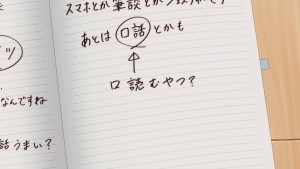 ツ
なんですね
話うまい？
スマホとか筆談とか
あとは口話とかも
口読むやつ？